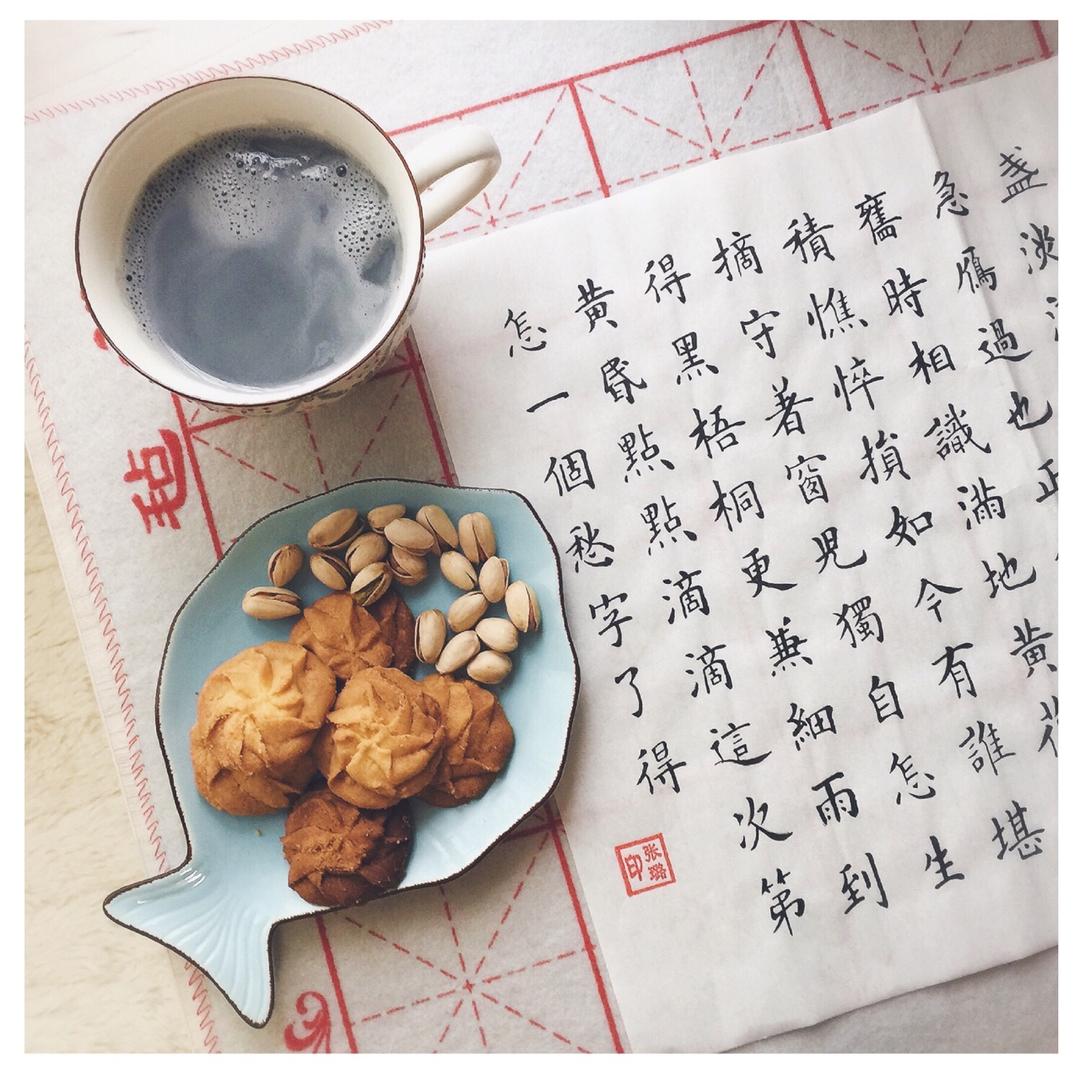 盞淡
急鴈過也正
舊時相識滿地黃花
積憔悴損如今有誰堪
摘守著窗兒獨自怎生
得黑梧桐更兼細雨到
黃昏點點滴滴這次第
怎一個愁字了得
张璐印
毡